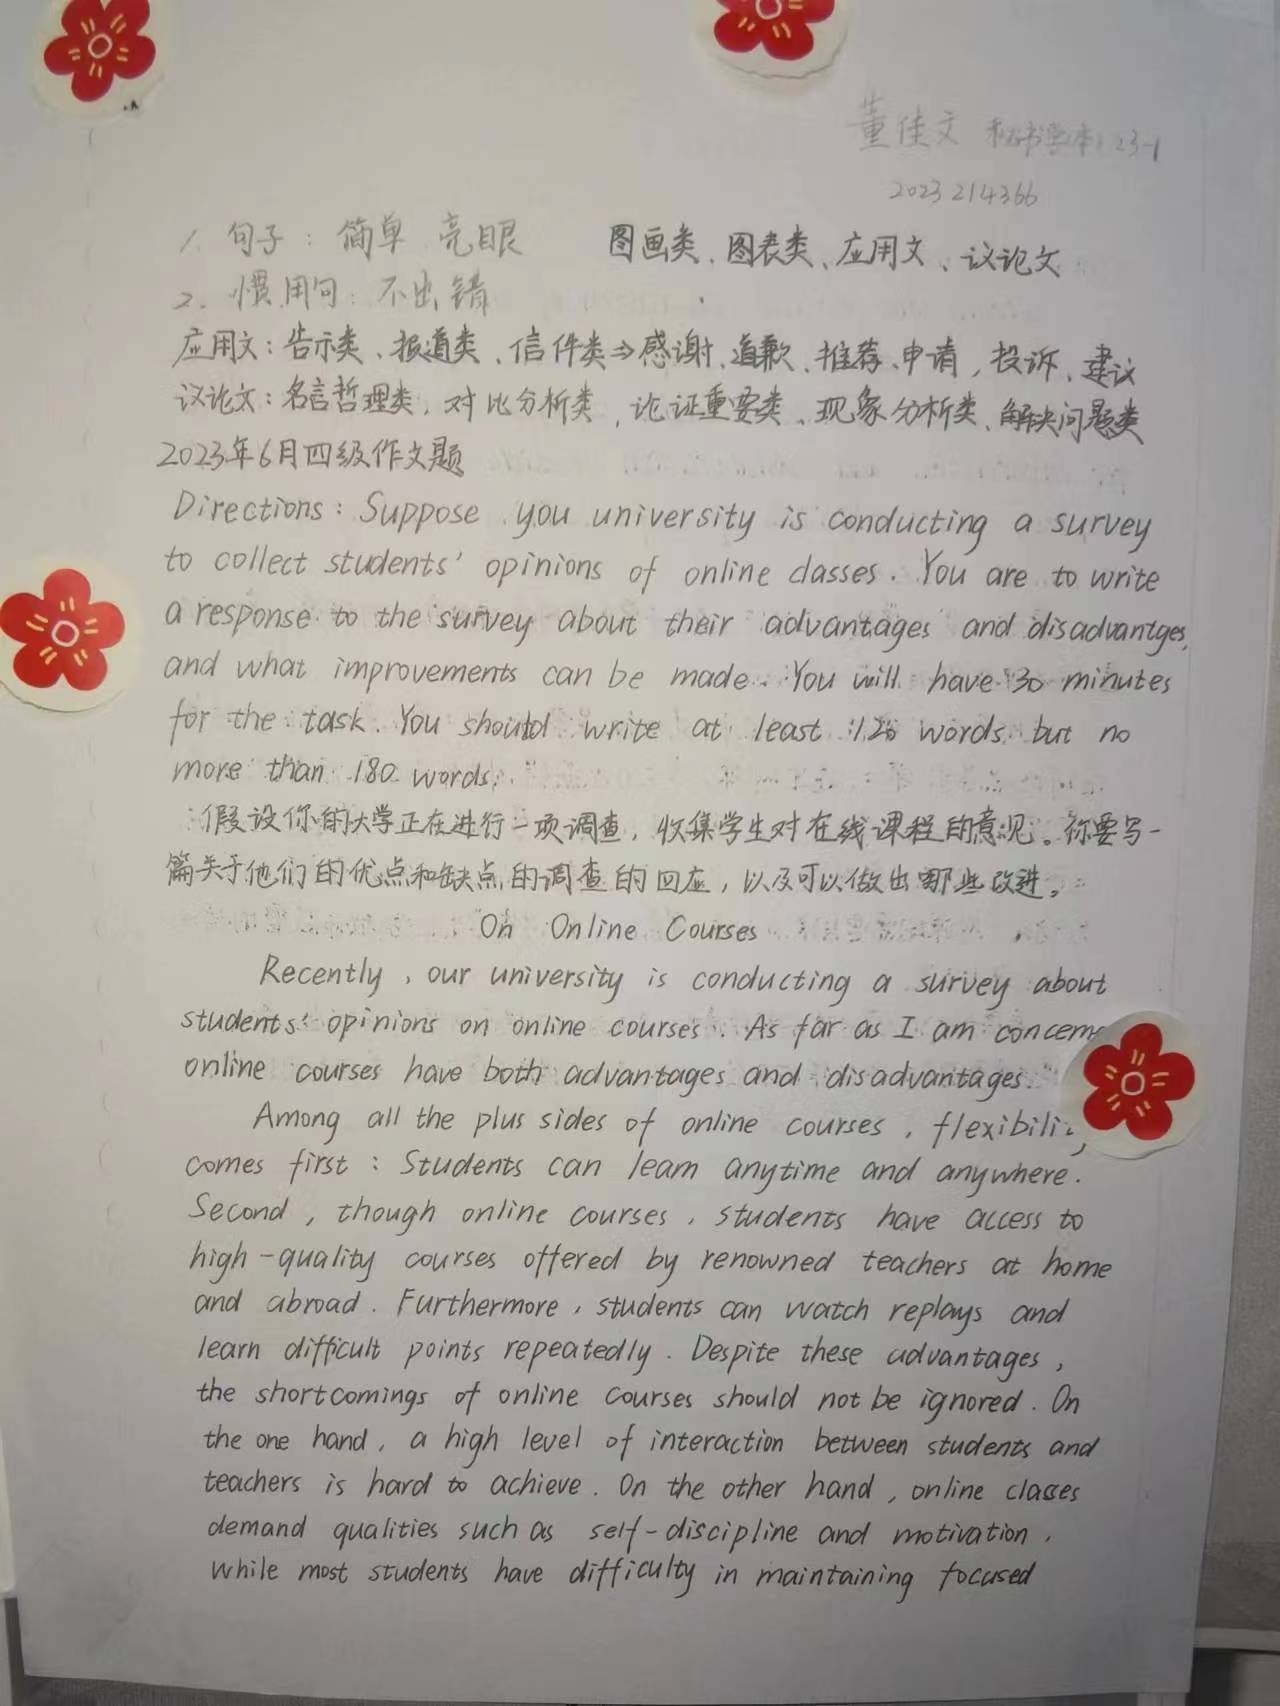 董佳文 秘书学本 23-1
2023214366
1. 句子：简单 亮眼 图画类、图表类、应用文、议论文
2. 惯用句：不出错
应用文：告示类、报道类、信件类⇒感谢、道歉、推荐、申请，投诉、建议
议论文：名言哲理类，对比分析类，论证重要类、现象分析类、解决问题类
2023年6月四级作文题
Directions: Suppose you university is conducting a survey
to collect students' opinions of online classes. You are to write
a response to the survey about their advantages and disadvantges,
and what improvements can be made. You will have 30 minutes
for the task. You should write at least 120 words but no
more than 180 words.
假设你的大学正在进行一项调查，收集学生对在线课程的意见。你要写一
篇关于他们的优点和缺点的调查的回应，以及可以做出哪些改进。
On Online Courses
Recently, our university is conducting a survey about
students' opinions on online courses. As far as I am concern
online courses have both advantages and disadvantages.
Among all the plus sides of online courses, flexibility
comes first: Students can learn anytime and anywhere.
Second, though online courses, students have access to
high-quality courses offered by renowned teachers at home
and abroad. Furthermore, students can watch replays and
learn difficult points repeatedly. Despite these advantages,
the shortcomings of online courses should not be ignored. On
the one hand, a high level of interaction between students and
teachers is hard to achieve. On the other hand, online classes
demand qualities such as self-discipline and motivation,
while most students have difficulty in maintaining focused